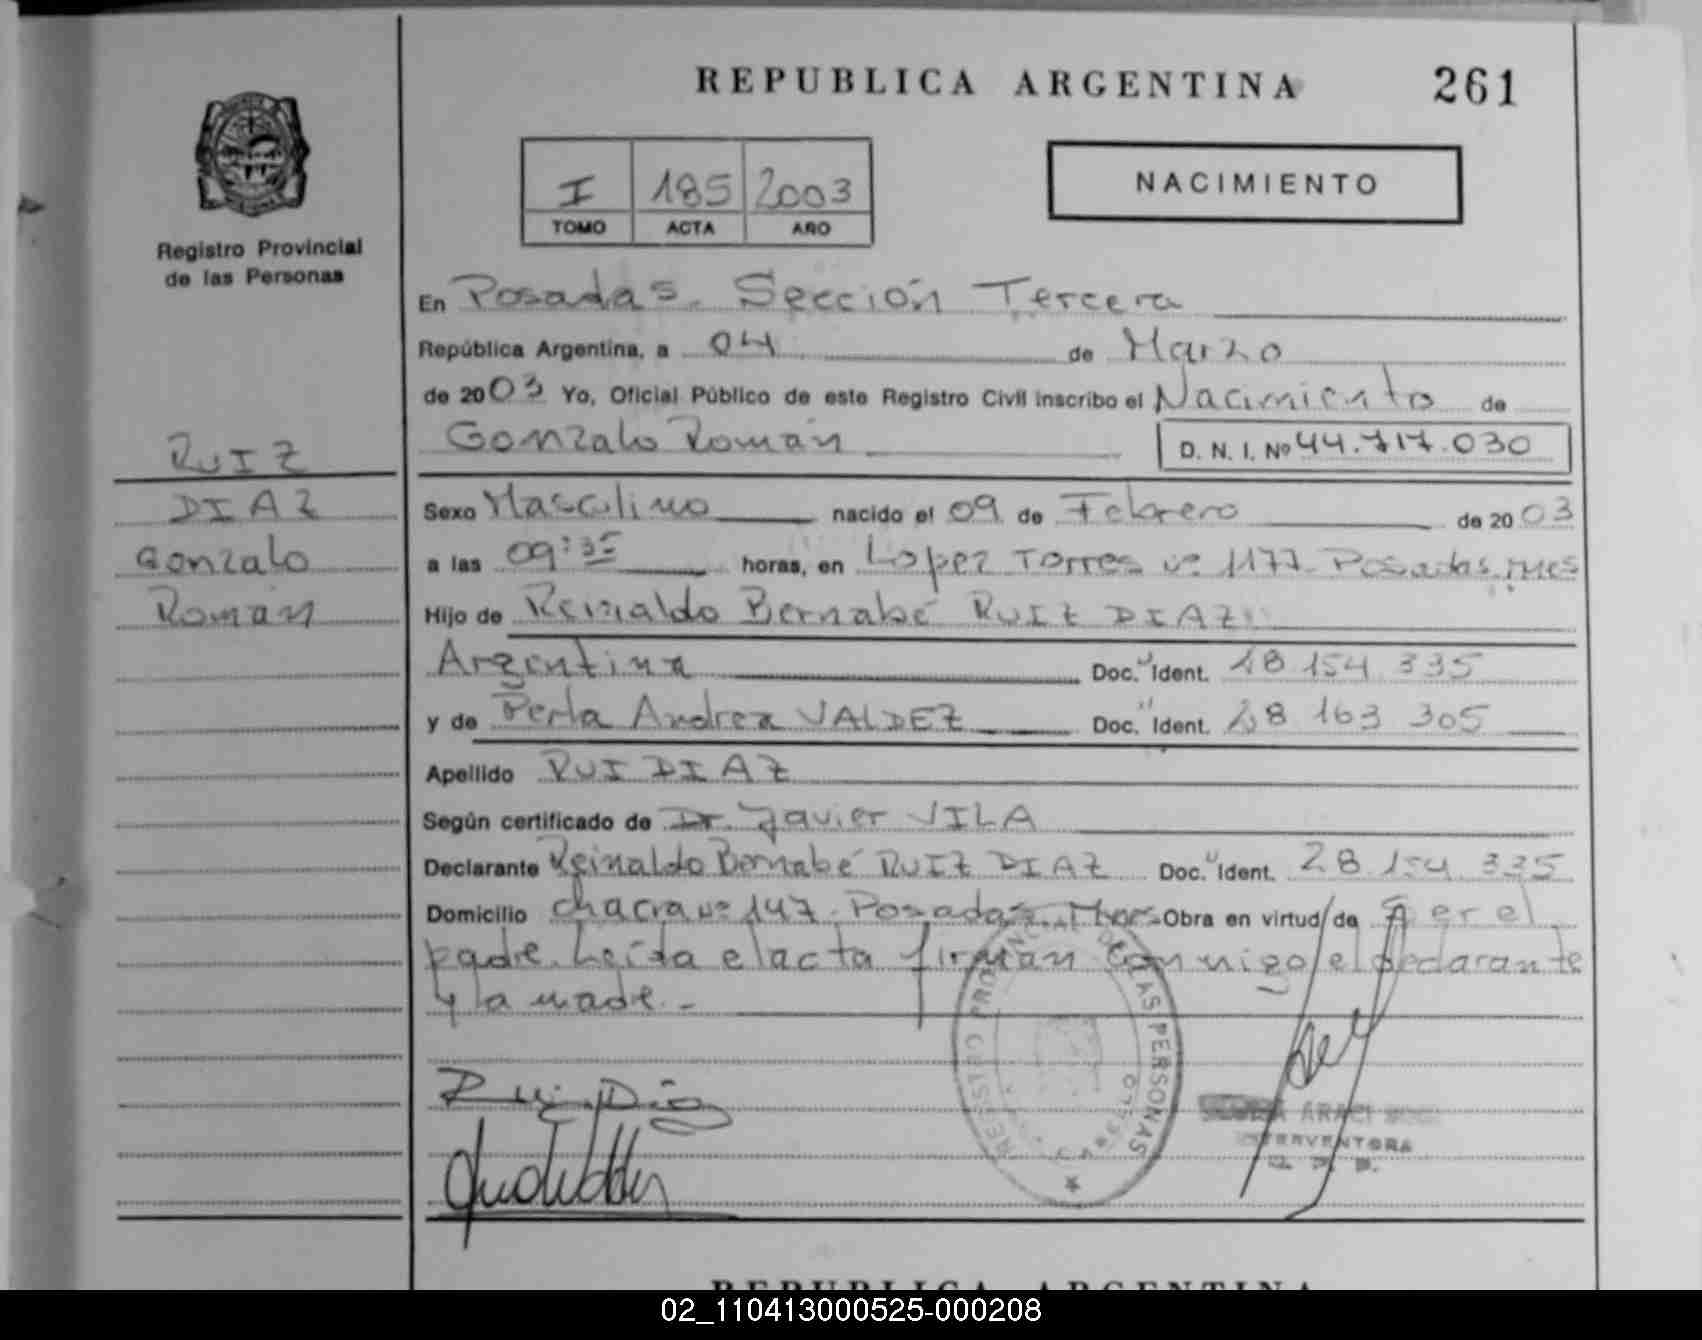 REPUBLICA ARGENTINA 261
Registro Provincial
de las Personas
I 185 2003
TOMO ACTA AÑO
NACIMIENTO
En Posadas. Sección Tercera
República Argentina, a 04 de Marzo
de 2003 Yo, Oficial Público de este Registro Civil inscribo el Nacimiento de
Gonzalo Román D. N. I. Nº 44.717.030
RUIZ
DIAZ
Gonzalo
Román
Sexo Masculino nacido el 09 de Febrero de 2003
a las 09:35 horas, en Lopez Torres nº 1177 Posadas, Mnes
Hijo de Reinaldo Bernabé RUIZ DIAZ
Argentina Doc. Ident. 28 154 335
y de Perla Andrea VALDEZ Doc. Ident. 28 163 305
Apellido RUI DIAZ
Según certificado de Dr. Javier VILA
Declarante Reinaldo Bernabé RUIZ DIAZ Doc. Ident. 28 154 335
Domicilio chacra nº 147. Posadas. Mnes Obra en virtud de Ser el
padre. Leída el acta firman conmigo el declarante
y la madre.-
Rui Diaz
REGISTRO PROVINCIAL DE LAS PERSONAS
ARACI
INTERVENTORA
REPUBLICA ARGENTINA
02_110413000525-000208